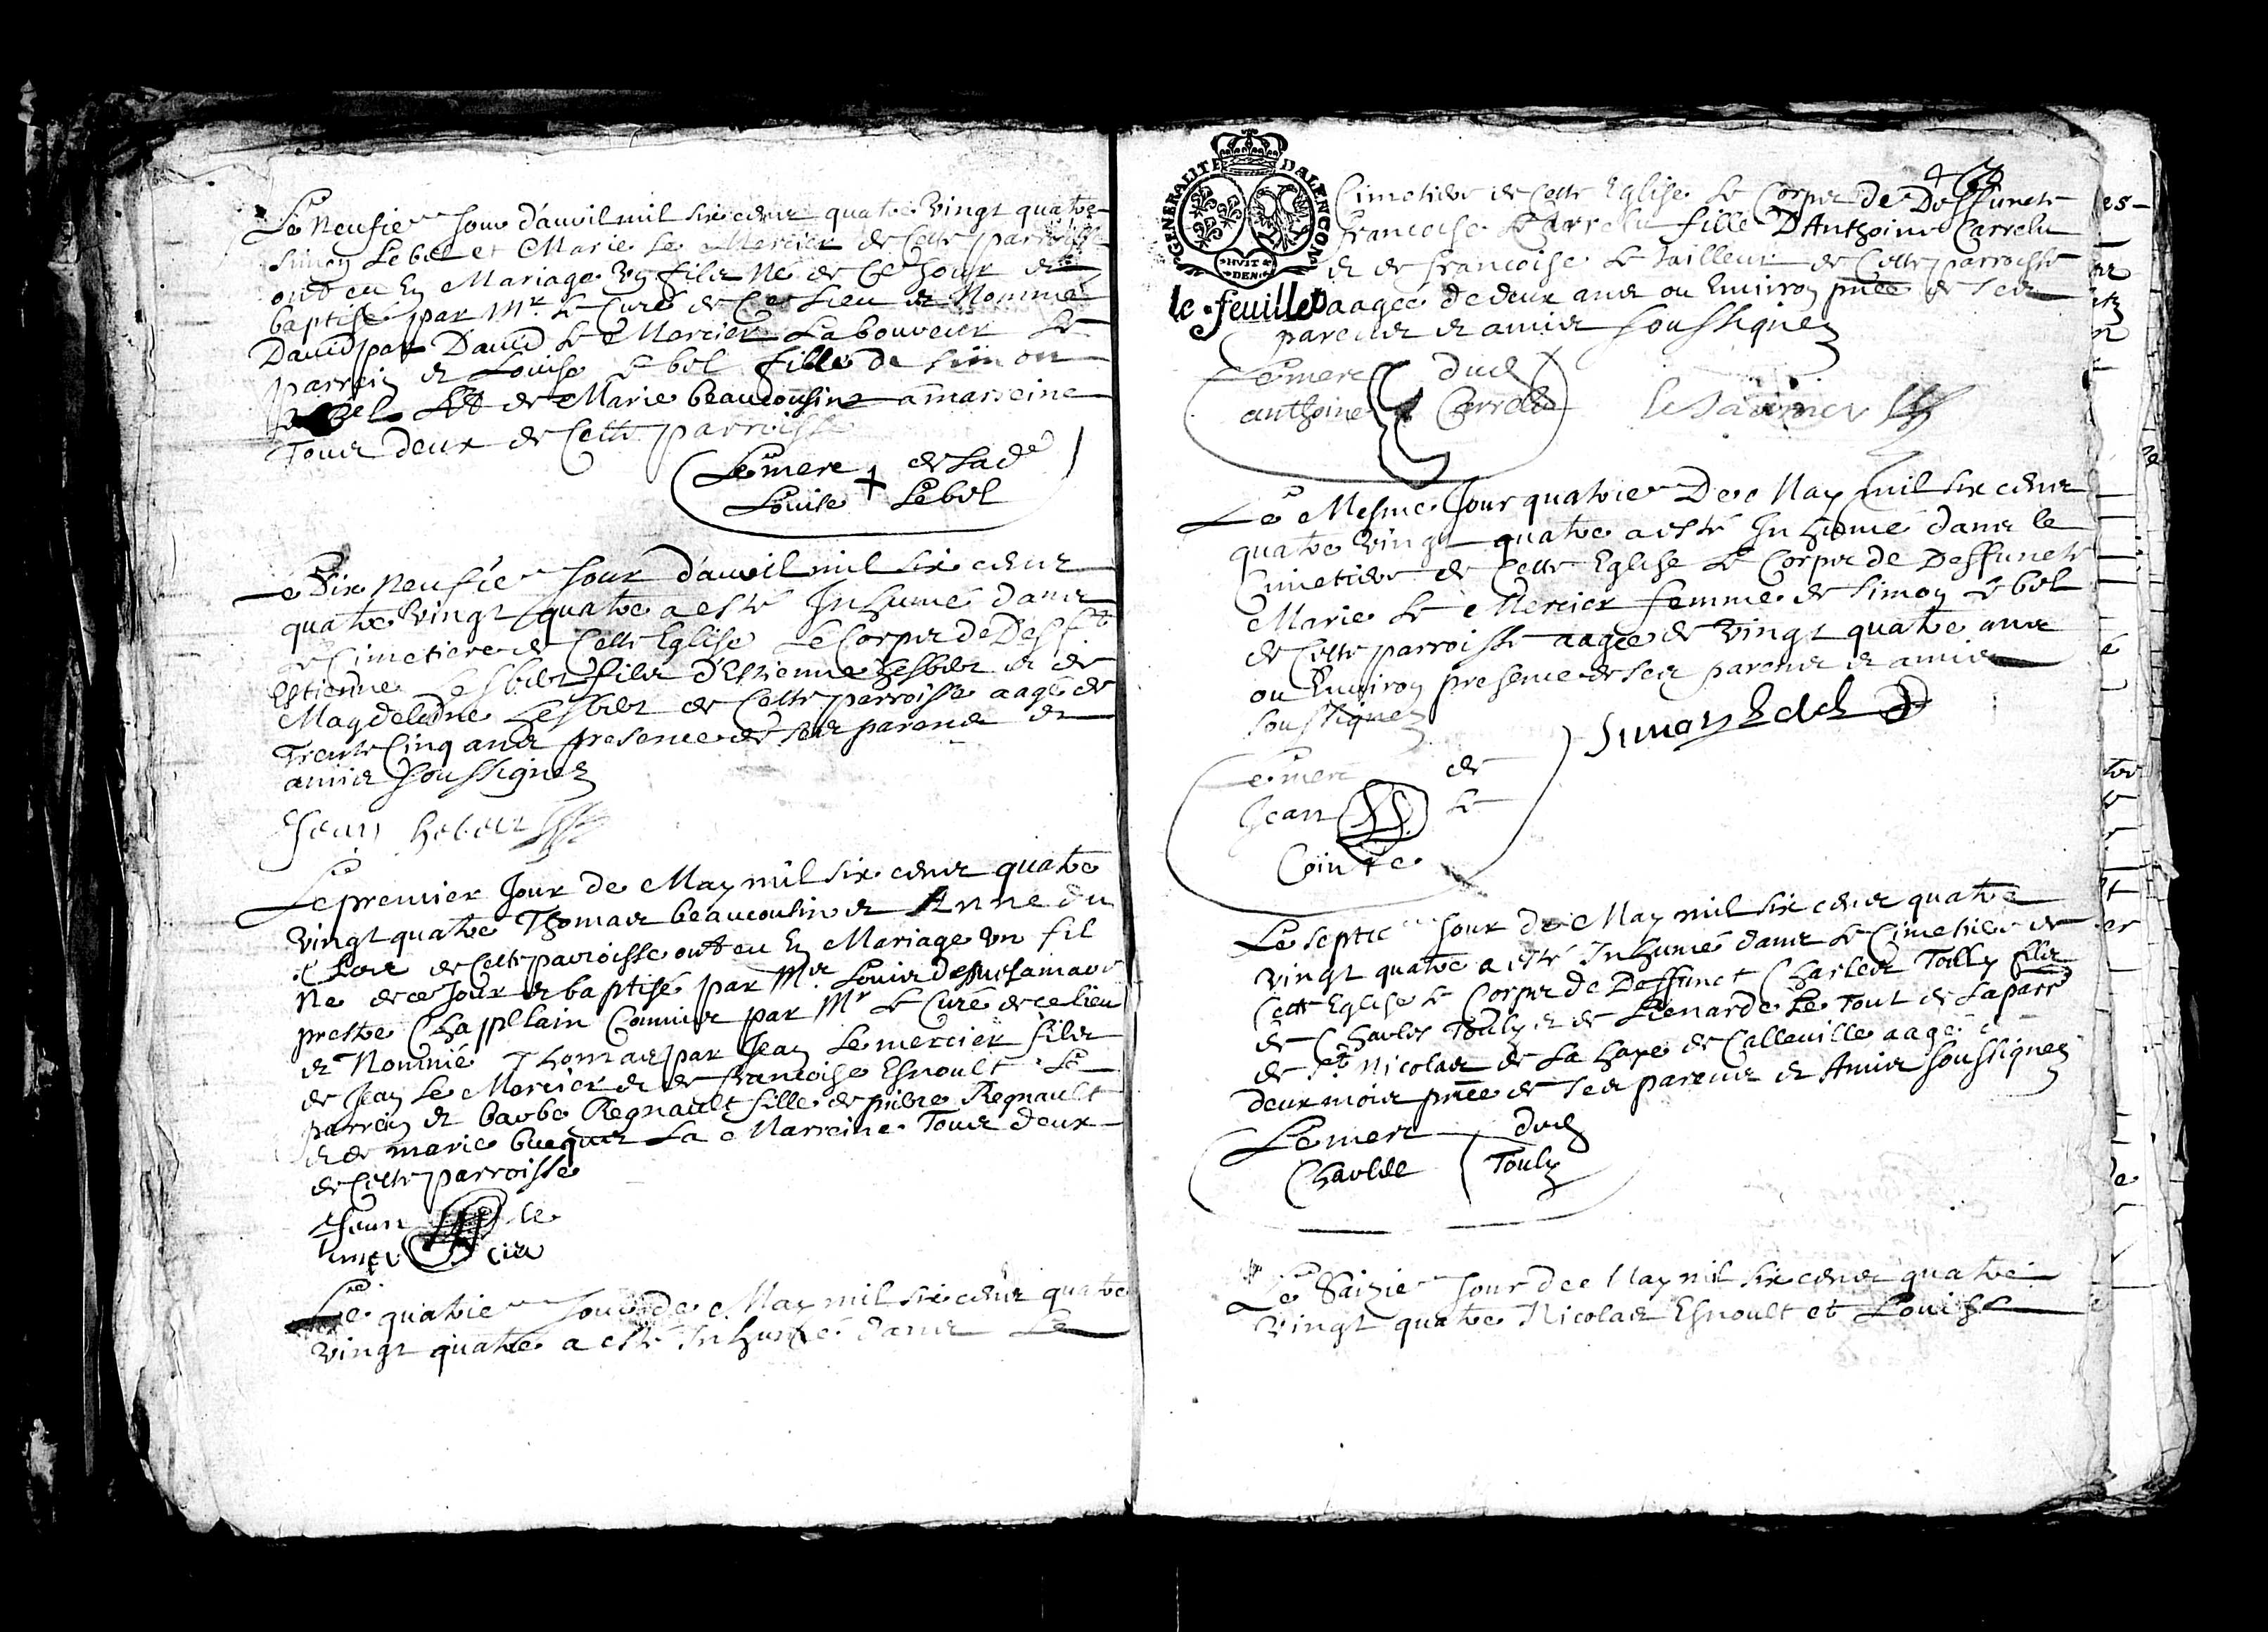 Le Neufie jour d'avril mil six cens quatre vingt quatre
Simon Lebel et Marie Le Mercier de cette parroisse
ont eu en Mariage un fils né de ce jour et
baptisé par Mr. le Curé de ce lieu et Nommé
David par David le Mercier Labourcier le
parrein et Louise le bel fille de simon
le bel et de Marie beaucousin a marreine
Tous deux de cette parroisse
Le merc de Lade
Louise + Lebel
Le Dix Neufie jour d'avril mil six cens
quatre vingt quatre a esté Inhumé dans
le Cimetiere de cette Eglise Le Corps de Defft
Estienne fils d'Estienne et de
Magdeleine de cette parroisse aagé de
Trente Cinq ans presence de ses parens et
amis soussignez
Jean
Le premier Jour de May mil six cens quatre
vingt quatre Thomas beaucousin et Anne du
de cette parroisse ont eu en Mariage un fil
Né de ce jour et baptisé par Mr. Louis
prestre Chappllain Commis par Mr le Curé de ce lieu
et Nommé Thomas par Jean Lemercier fils
de Jean Le Mercier et de francoise Esnoult Le
parrein et barbe Regnault fille de pierre Regnault
et de marie La Marreine Tous deux
de cette parroisse
Jean le
mer cier
Le quatrie jour de May mil six cens quatre
vingt quatre a esté Inhumé dans Le
GENERALITE DALENCON
HVIT DEN
le feuillet
Cimetiere de cette Eglise le Corps de Deffuncte
francoise Carrelu fille D'Anthoine Carrelu
et de francoise le Tailleur de cette parroisse
aagee de deux ans ou Environ pnce de ses
parens et amis soussignez
Le merc dud
anthoine Carrelu
Le Mesme Jour quatrie De May mil six cens
quatre vingt quatre a esté Inhumé dans le
Cimetiere de cette Eglise le Corps de Deffuncte
Marie le Mercier femme de Simon le bel
de cette parroisse aagee de vingt quatre ans
ou Environ presence de ses parens et amis
soussignez
Simon Lebel
Le merc de
Jean le
Cointe
Le septie jour de May mil six cens quatre
vingt quatre a esté Inhumé dans le Cimetiere de
cette Eglise le Corps de Deffunct Charles Toully fils
de Charles Toully et de Lienarde Le Tout de la parr
de St Nicolas de La haye de Calleville aagé de
deux mois pnce de ses parens et Amis soussignez
Le merc dud
Charles Toully
Le Saizie jour de May mil six cens quatre
vingt quatre Nicolas Esnoult et Louise